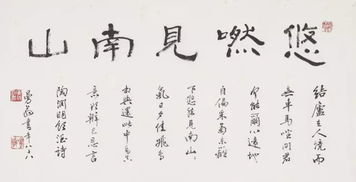 悠然見南山
結廬在人境而
無車馬喧問君
何能爾心遠地
自偏采菊東籬
下悠然見南山
氣日夕佳飛鳥
相與還此中有真
意欲辨已忘言
陶淵明飲酒詩
曼翁書年八六